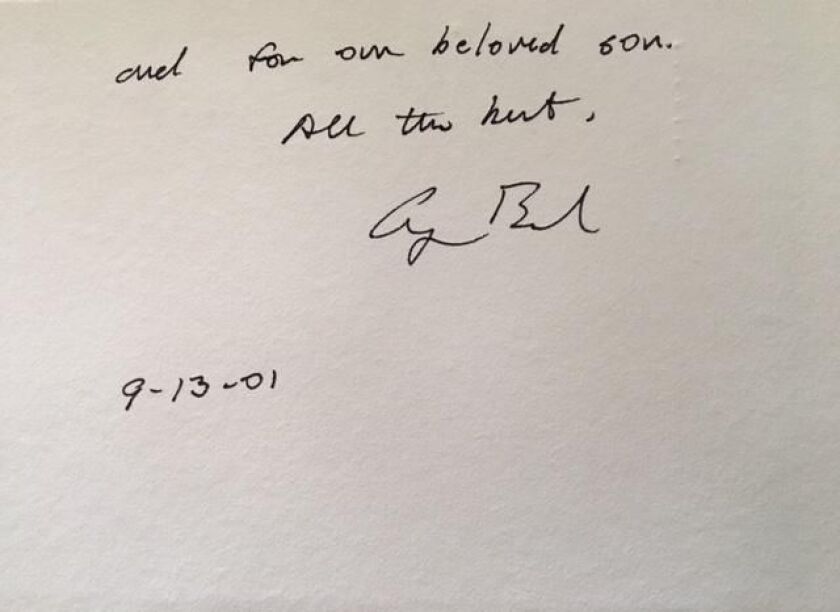 and for our beloved son.
All the best,
9-13-01